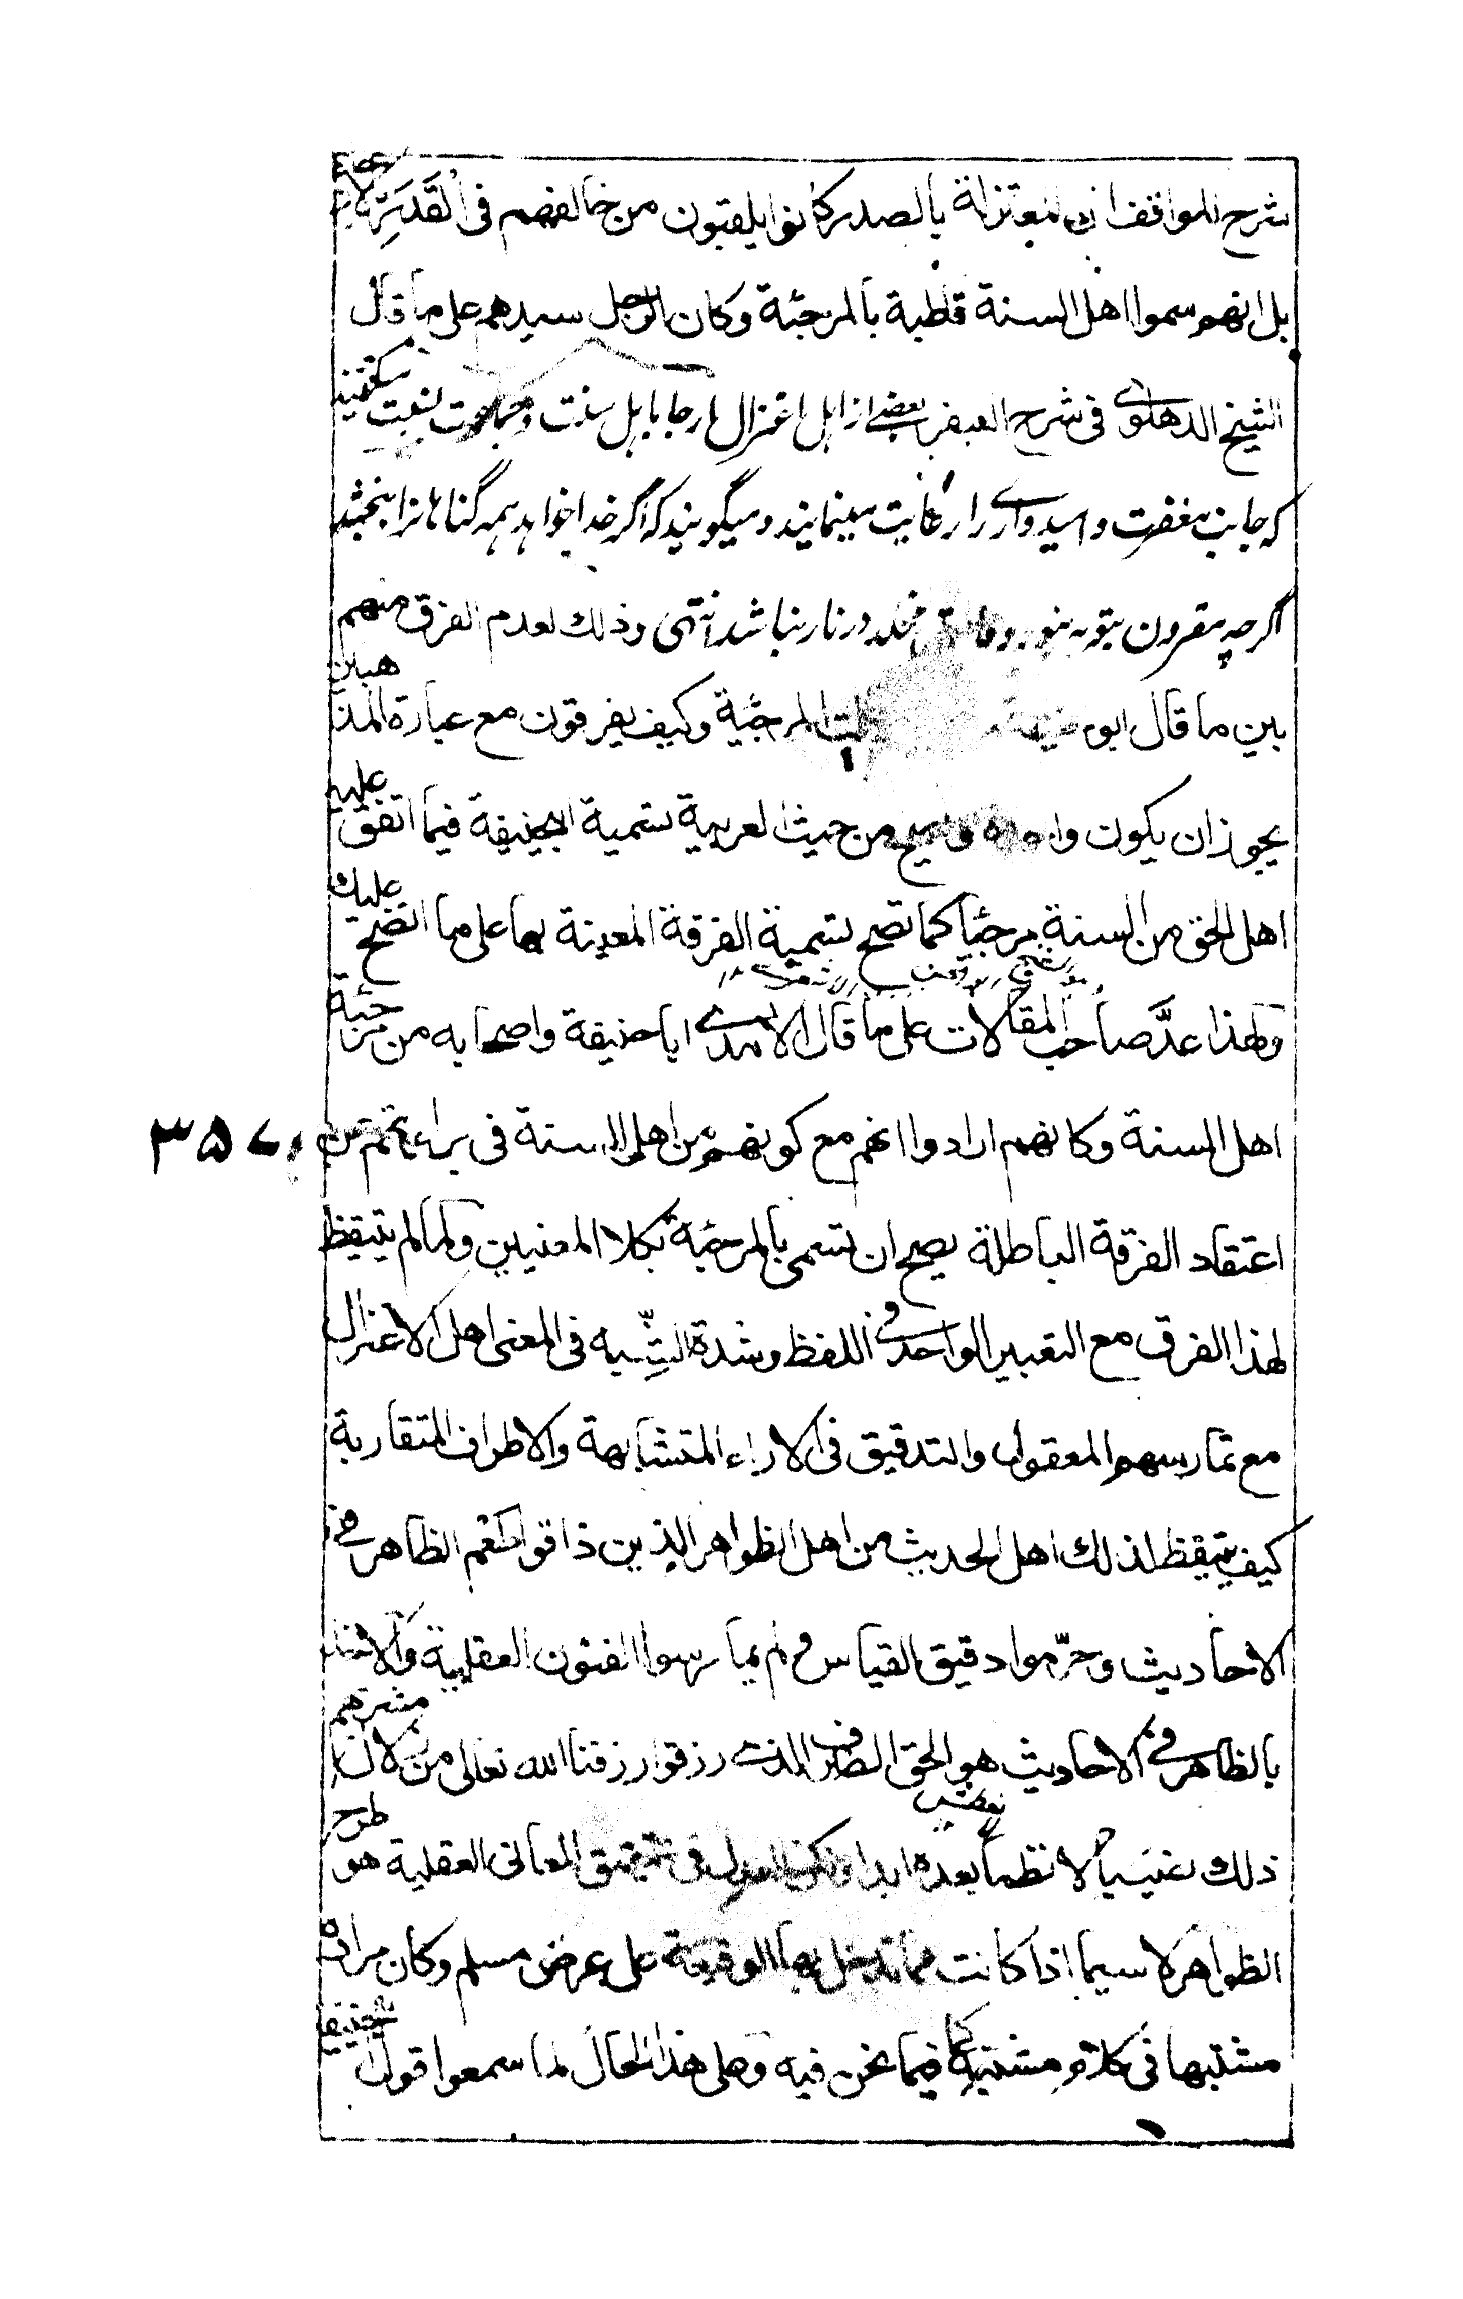 شرح المواقف ان المعتزلة بالصدر كانوا يلقبون من خالفهم فى القدر مرجئا
بل انهم سموا اهل السنة قاطبة بالمرجئة وكان الرجل سيدهم على ما قال
الشيخ الدهلوى فى شرح بعضے از اہل اعتزال ارجا باہل سنت وجماعت نسبت میکنند
کہ جانب مغفرت وامیدواری را رعایت مینمایند ومیگویند کہ اگر خدا خواہد ہمہ گناہانرا بخشد
اگرچہ مقرون بتوبہ نبود مخلد در نار نباشد انتهى وذلك لعدم الفرق منهم
بين ما قال ابو حنيفة المرجئة وكيف يفرقون مع عبارة المذهبين
يجوز ان يكون من حيث العربية تسمية ابيحنيفة فيما اتفق عليه
اهل الحق من السنة مرجئيا كما تصح تسمية الفرقة المعدنة بها على ما اتضح عليك
ولهذا عدّ صاحب المقالات على ما قال الامدى ابا حنيفة واصحابه من مرجئة
اهل السنة وكانهم ارادوا انهم مع كونهم من اهل السنة فى براءتهم عن
اعتقاد الفرقة الباطلة يصح ان تسمى بالمرجئة بكلا المعنيين ولما لم يتيقظ
لهذا الفرق مع التعبير الواحد فى اللفظ وشدة التشبيه فى المعنى اهل الاعتزال
مع تمارسهم المعقول والتدقيق فى الاراء المتشابهة والاطراف المتقاربة
كيف يتيقظ لذلك اهل الحديث من اهل الظواهر الذين ذاقوا طعم الظاهر فى
الاحاديث وحرّموا دقيق القياس ولم يمارسوا الفنون العقلية و
بالظاهر فى الاحاديث هو الحق الصرف الذى رزقوا رزقنا الله تعالى من زلال مشربهم
ذلك نصيبا لا نظمأ بعده ابدا ولكن العدل فى تحقيق المعانى العقلية هو طرح
الظواهر لا سيما اذا كانت مما تدخل بها الوقيعة على عرض مسلم وكان مراده
مشتبها فى كلام مشتبه كما فيما نحن فيه وعلى هذا الحال لما سمعوا قول
٣٥٧